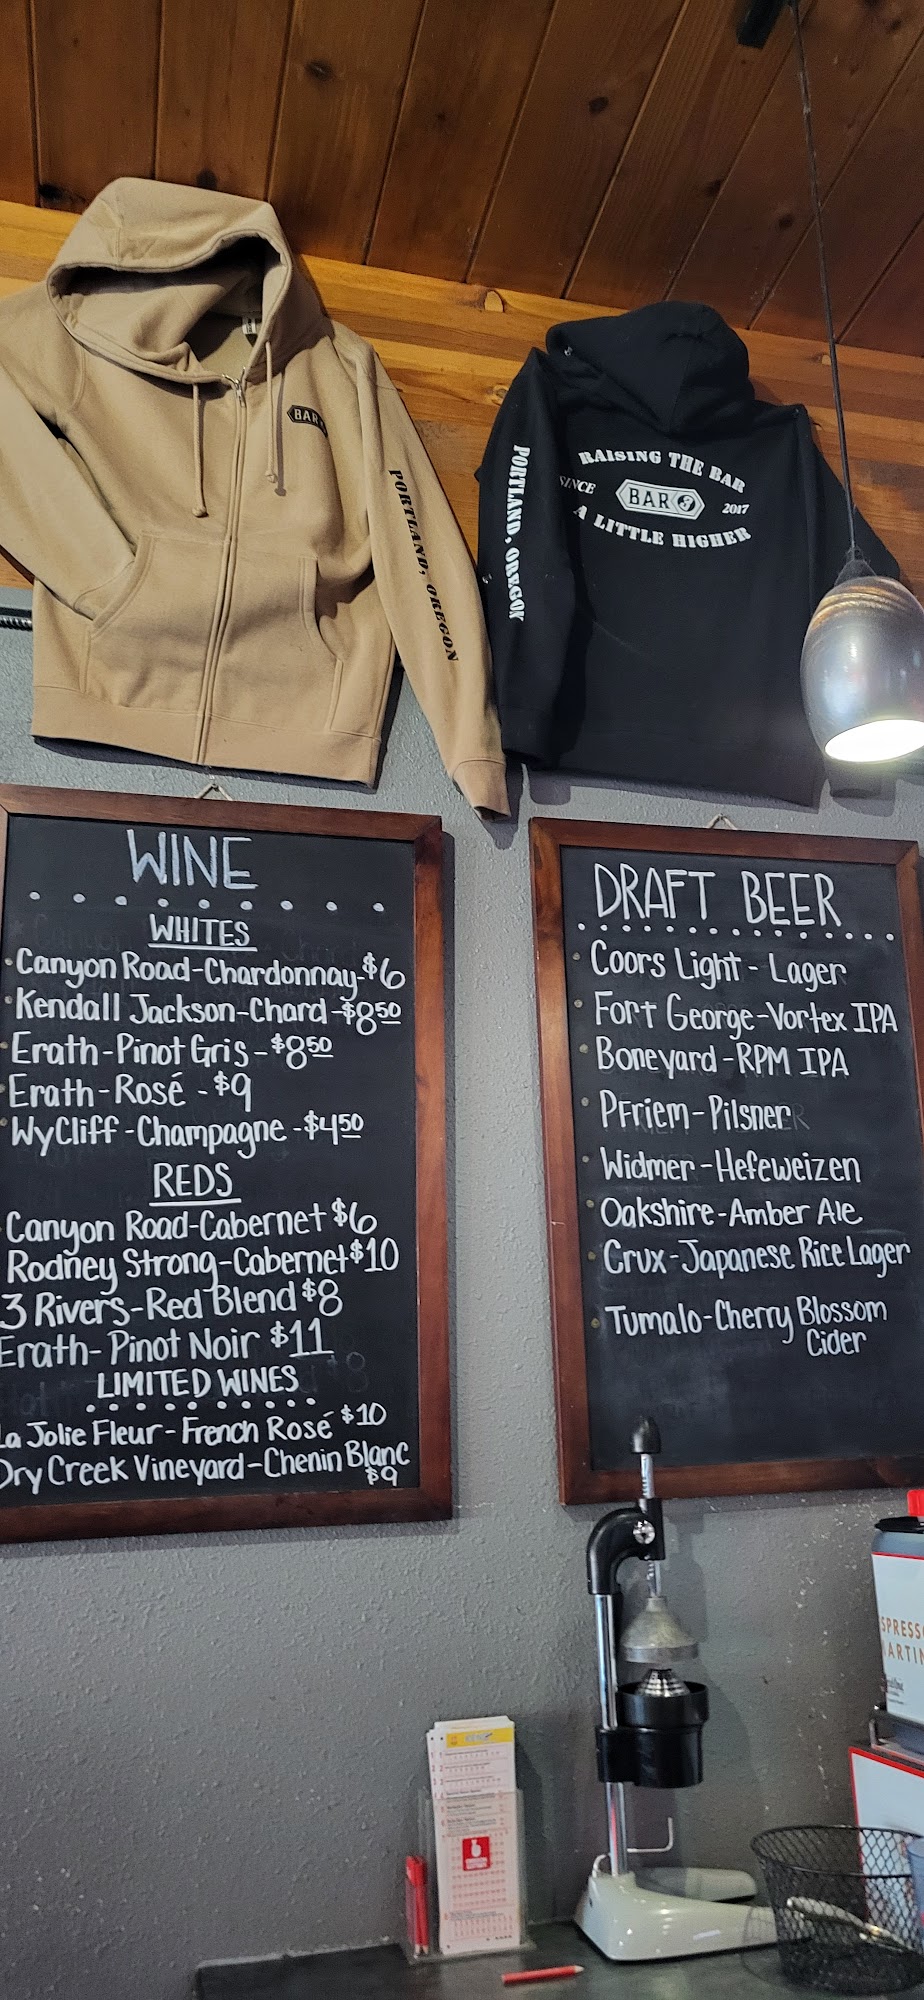 BAR
PORTLAND, OREGON
PORTLAND, OREGON
RAISING THE BAR
SINCE BAR 2017
A LITTLE HIGHER
WINE
WHITES
Canyon Road-Chardonnay-$6
Kendall Jackson-Chard-$8 50
Erath-Pinot Gris-$8 50
Erath-Rosé-$9
WyCliff-Champagne-$4 50
REDS
Canyon Road-Cabernet $6
Rodney Strong-Cabernet $10
3 Rivers-Red Blend $8
Erath-Pinot Noir $11
LIMITED WINES
La Jolie Fleur-French Rosé $10
Dry Creek Vineyard-Chenin Blanc
$9
DRAFT BEER
Coors Light - Lager
Fort George-Vortex IPA
Boneyard-RPM IPA
PFriem-Pilsner
Widmer-Hefeweizen
Oakshire-Amber Ale
Crux-Japanese Rice Lager
Tumalo-Cherry Blossom
Cider
SPRESSO
ARTIN